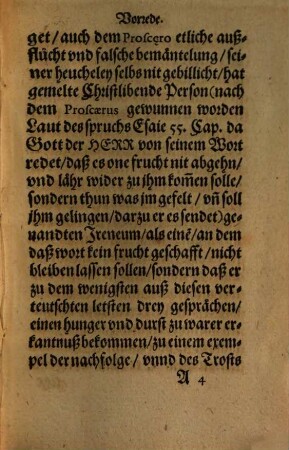 Vorrede.
get / auch dem Proscęro etliche auß-
flücht vnd falsche bemäntelung / sei-
ner heucheley selbs nit gebillicht / hat
gemelte Christlibende Person (nach
dem Proscærus gewunnen worden
Laut des spruchs Esaie 55. Cap. da
Gott der HERR von seinem Wort
redet / daß es one frucht nit abgehn /
vnd lähr wider zu jhm kom̃en solle /
sondern thun was jm gefelt / vñ soll
jhm gelingen / darzu er es sendet) ge-
nandten Ireneum / als einē / an dem
daß wort kein frucht geschafft / nicht
bleiben lassen sollen / sondern daß er
zu dem wenigsten auß diesen ver-
teutschten letsten drey gesprächen /
einen hunger vnd durst zu warer er-
kantnuß bekommen / zu einem exem-
pel der nachfolge / vnnd des Trosts
A 4